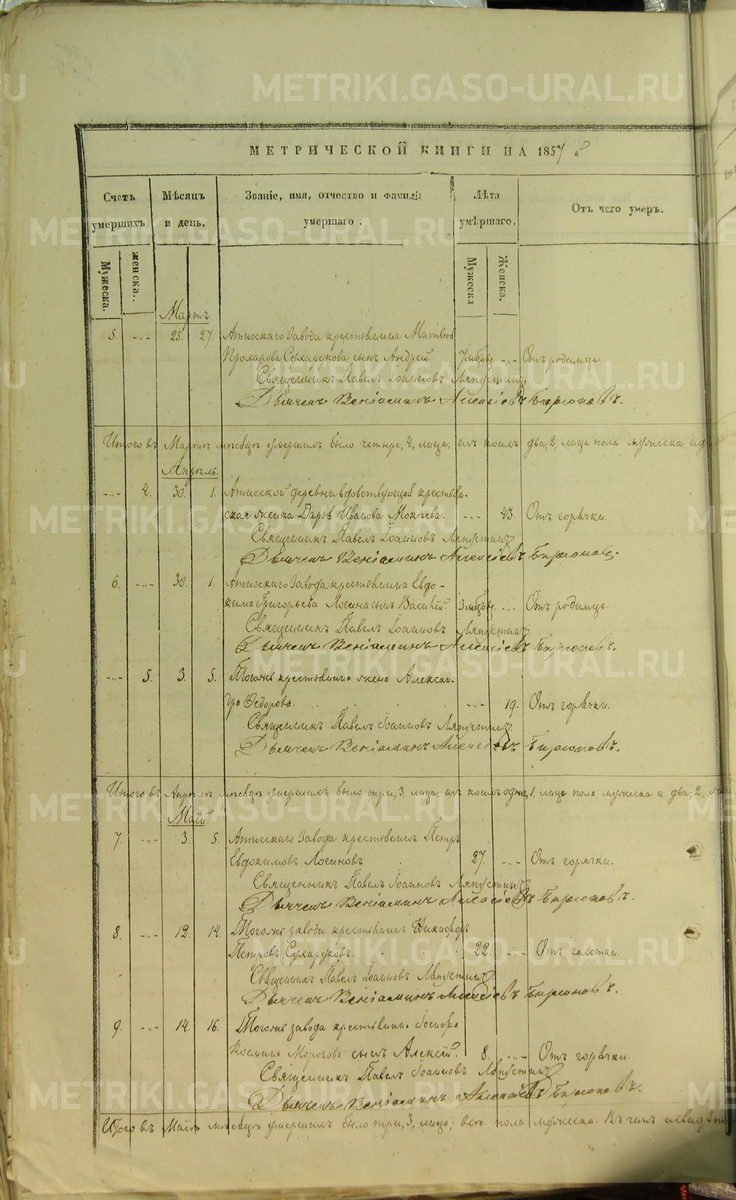 МЕТРИЧЕСКОЙ КНИГИ НА 1857 й
Счетъ умершихъ
Мѣсяцъ и день.
Званіе, имя, отчество и фамилія умершаго.
Лѣта умершаго.
Отъ чего умеръ.
Мужеска.
женска.
Мужеска
Женска.
Мартъ
5. -..- 25. 27. Атигскаго Завода крестьянина Матвѣя
Прохарова Сухарукова сынъ Андрей -..- Отъ родимца
Священникъ Павелъ Іоанновъ Ляпустинъ
Дьячекъ Веніаминъ Алексіевъ Бирюковъ.
Итого въ Мартѣ мѣсяцѣ умершихъ было четыре, 4, лица, изъ коихъ два, 2, лица пола мужеска и
Апрѣль.
-..- 4. 30. 1. Атигской деревни вдовствующая крестьян-
ская женка Дарья Иванова -..- 43. Отъ горячки.
Священникъ Павелъ Іоанновъ Ляпустинъ
Дьячекъ Веніаминъ Алексіевъ Бирюковъ.
6. -..- 30. 1. Атигскаго Завода крестьянина Евдо-
кима Григорьева Логинова сынъ Василій. -..- Отъ родимца.
Священникъ Павелъ Іоанновъ Ляпустинъ
Дьячекъ Веніаминъ Алексіевъ Бирюковъ.
-..- 5. 3. 5. Тогожъ крестьянина жена Алексан-
дра Ѳедорова. -..- 19. Отъ горячки.
Священникъ Павелъ Іоанновъ Ляпустинъ
Дьячекъ Веніаминъ Алексіевъ Бирюковъ.
Итого въ Апрѣлѣ мѣсяцѣ умершихъ было три, 3, лица, изъ коихъ одно, 1, лице пола мужеска и два, 2,
Май
7. -..- 3 5. Атигскаго Завода крестьянинъ Петръ
Евдокимовъ Логиновъ 27. -..- Отъ горячки.
Священникъ Павелъ Іоанновъ Ляпустинъ
Дьячекъ Веніаминъ Алексіевъ Бирюковъ.
8. -..- 12. 14. Тогожъ завода крестьянинъ Никифоръ
Петровъ Сухаруковъ. 22. -..- Отъ чахотки.
Священникъ Павелъ Іоанновъ Ляпустинъ
Дьячекъ Веніаминъ Алексіевъ Бирюковъ.
9. -..- 14. 16. Тогожъ завода крестьянина
Козмина сынъ Алексій. 8. -..- Отъ горячки.
Священникъ Павелъ Іоанновъ Ляпустинъ
Дьячекъ Веніаминъ Алексіевъ Бирюковъ.
Итого въ Маѣ мѣсяцѣ умершихъ было три, 3, лица; всѣ пола мужеска. Въ чемъ и
METRIKI.GASO-URAL.RU